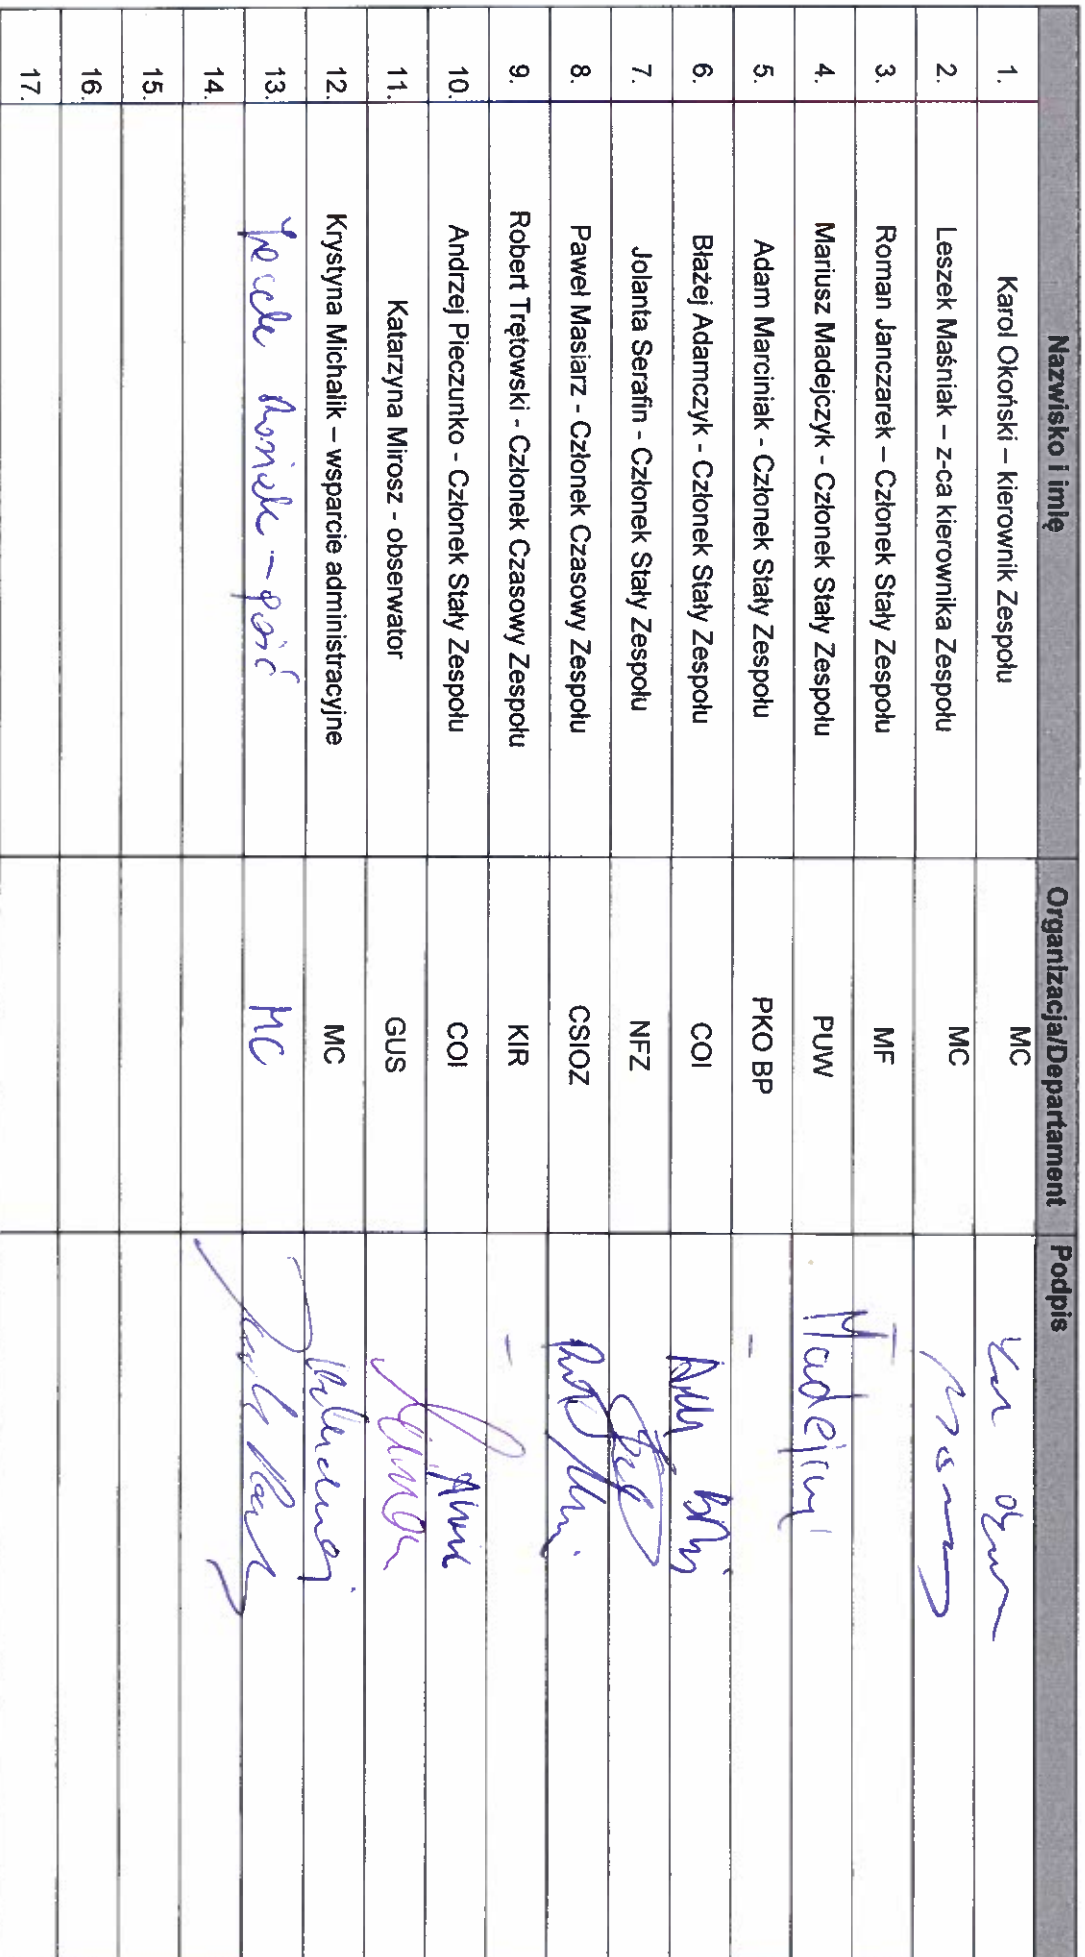 Nazwisko i imię Organizacja/Departament Podpis
1. Karol Okoński – kierownik Zespołu MC
2. Leszek Maśniak – z-ca kierownika Zespołu MC
3. Roman Janczarek – Członek Stały Zespołu MF –
4. Mariusz Madejczyk - Członek Stały Zespołu PUW
5. Adam Marciniak - Członek Stały Zespołu PKO BP –
6. Błażej Adamczyk - Członek Stały Zespołu COI
7. Jolanta Serafin - Członek Stały Zespołu NFZ
8. Paweł Masiarz - Członek Czasowy Zespołu CSIOZ
9. Robert Trętowski - Członek Czasowy Zespołu KIR –
10. Andrzej Pieczunko - Członek Stały Zespołu COI
11. Katarzyna Mirosz - obserwator GUS
12. Krystyna Michalik – wsparcie administracyjne MC
13. – gość MC
14.
15.
16.
17.